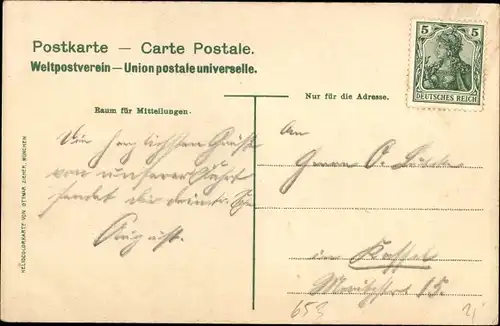 Postkarte — Carte Postale.
Weltpostverein — Union postale universelle.
5 5
DEUTSCHES REICH
Nur für die Adresse.
Raum für Mitteilungen.
Die herzlichsten Grüße
von unserer Fahrt
sendet dir
August.
An
Herrn O.
in Kassel
15.
HELIOCOLORKARTE VON OTTMAR ZIEHER, MÜNCHEN
653
21